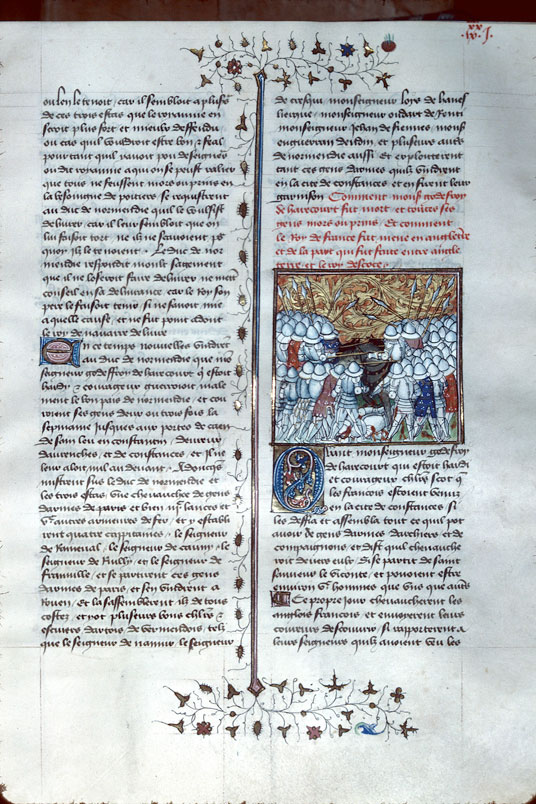 ou len le tenoit, car il sembloit a plus rs
de ces trois estas que le royaume en
seroit plus fort et mieulx deffendu
ou cas quil vouldroit estre bon & feal
pour tant quil y auoit pou de seigneurs
ou dit royaume a qui on se peust ralier
que tous ne feussent mors ou prins en
la besoingne de poitiers. se requistrent
au duc de normendie quil le voulsist
deliurer, car il leur sembloit que on
lui faisoit tort, ne ilz ne scauoient pour
quoy ilz le tenoient. Le duc de nor
mendie respondit moult sagement
que il ne loseroit faire deliurer ne mett
conseil en sa deliurance, car le Roy son
pere le faisoit tenir, si ne sauoit mie
a quelle cause, et ne fut point adont
le roy de nauarre deliure
En ce temps nouuelles vindrent
au duc de normendie que mon
seigneur godeffroy de harecourt qui estoit
hardy & courageux guerrioit male
ment le bon pais de normendie, et cou
roient ses gens deux ou trois fois la
sepmaine jusques aux portes de caen
de saint leu en constantin, deureux
dauranches, et de constances, et si ne
leur aloit nul au deuant. Adoncques
mistrent sus le duc de normendie et
les trois estas, vne cheuauchee de gens
darmes de paris et bien iiii c lances et
vc autres armeures de fer, et y establi
rent quatre cappitaines, le seigneur
de Raineual, le seigneur de cauny, le
seigneur de Rully, et le seigneur de
frauuille, et se partirent ces gens
darmes de paris, et sen vindrent a
rouen, et la sassemblerent ilz de tous
costez, et y ot plusieurs bons chlrs &
escuiers dartois, de vermendois, telz
que le seigneur de namur, le seigneur
de cresqui, monseigneur loys de haues
kerque, monseigneur oudart de Renti
monseigneur Jehan de fiennes, mons
enguerran deudin, et plusieurs autres
de normendie aussi, et exploitterent
tant ces gens darmes quilz vindrent
en la cite de constances et en firent leur
garnison Comment mons godeffroy
de harecourt fut mort, et toutes ses
gens mors ou prins, Et comment
le Roy de france fut mene en angleterre
et de la paix qui fut faite entre angle
terre et le roy descoce
Quant monseigneur godefroy
de harecourt qui estoit hardi
et courageux chlr scot que
les francois estoient venuz
en la cite de constances, si
les deffia et assembla tout ce quil pot
auoir de gens darmes darchiers et de
compaignons, et dist quil cheuauche
roit deuers eulx, Si se partit de saint
sauueur le viconte, et pouoient estre
enuiron vc hommes que vns que autres
Le propre jour cheuaucherent les
anglois francois, et enuoierent leurs
coureurs descouurir, si rapporterent a
leurs seigneurs quilz auoient veu les